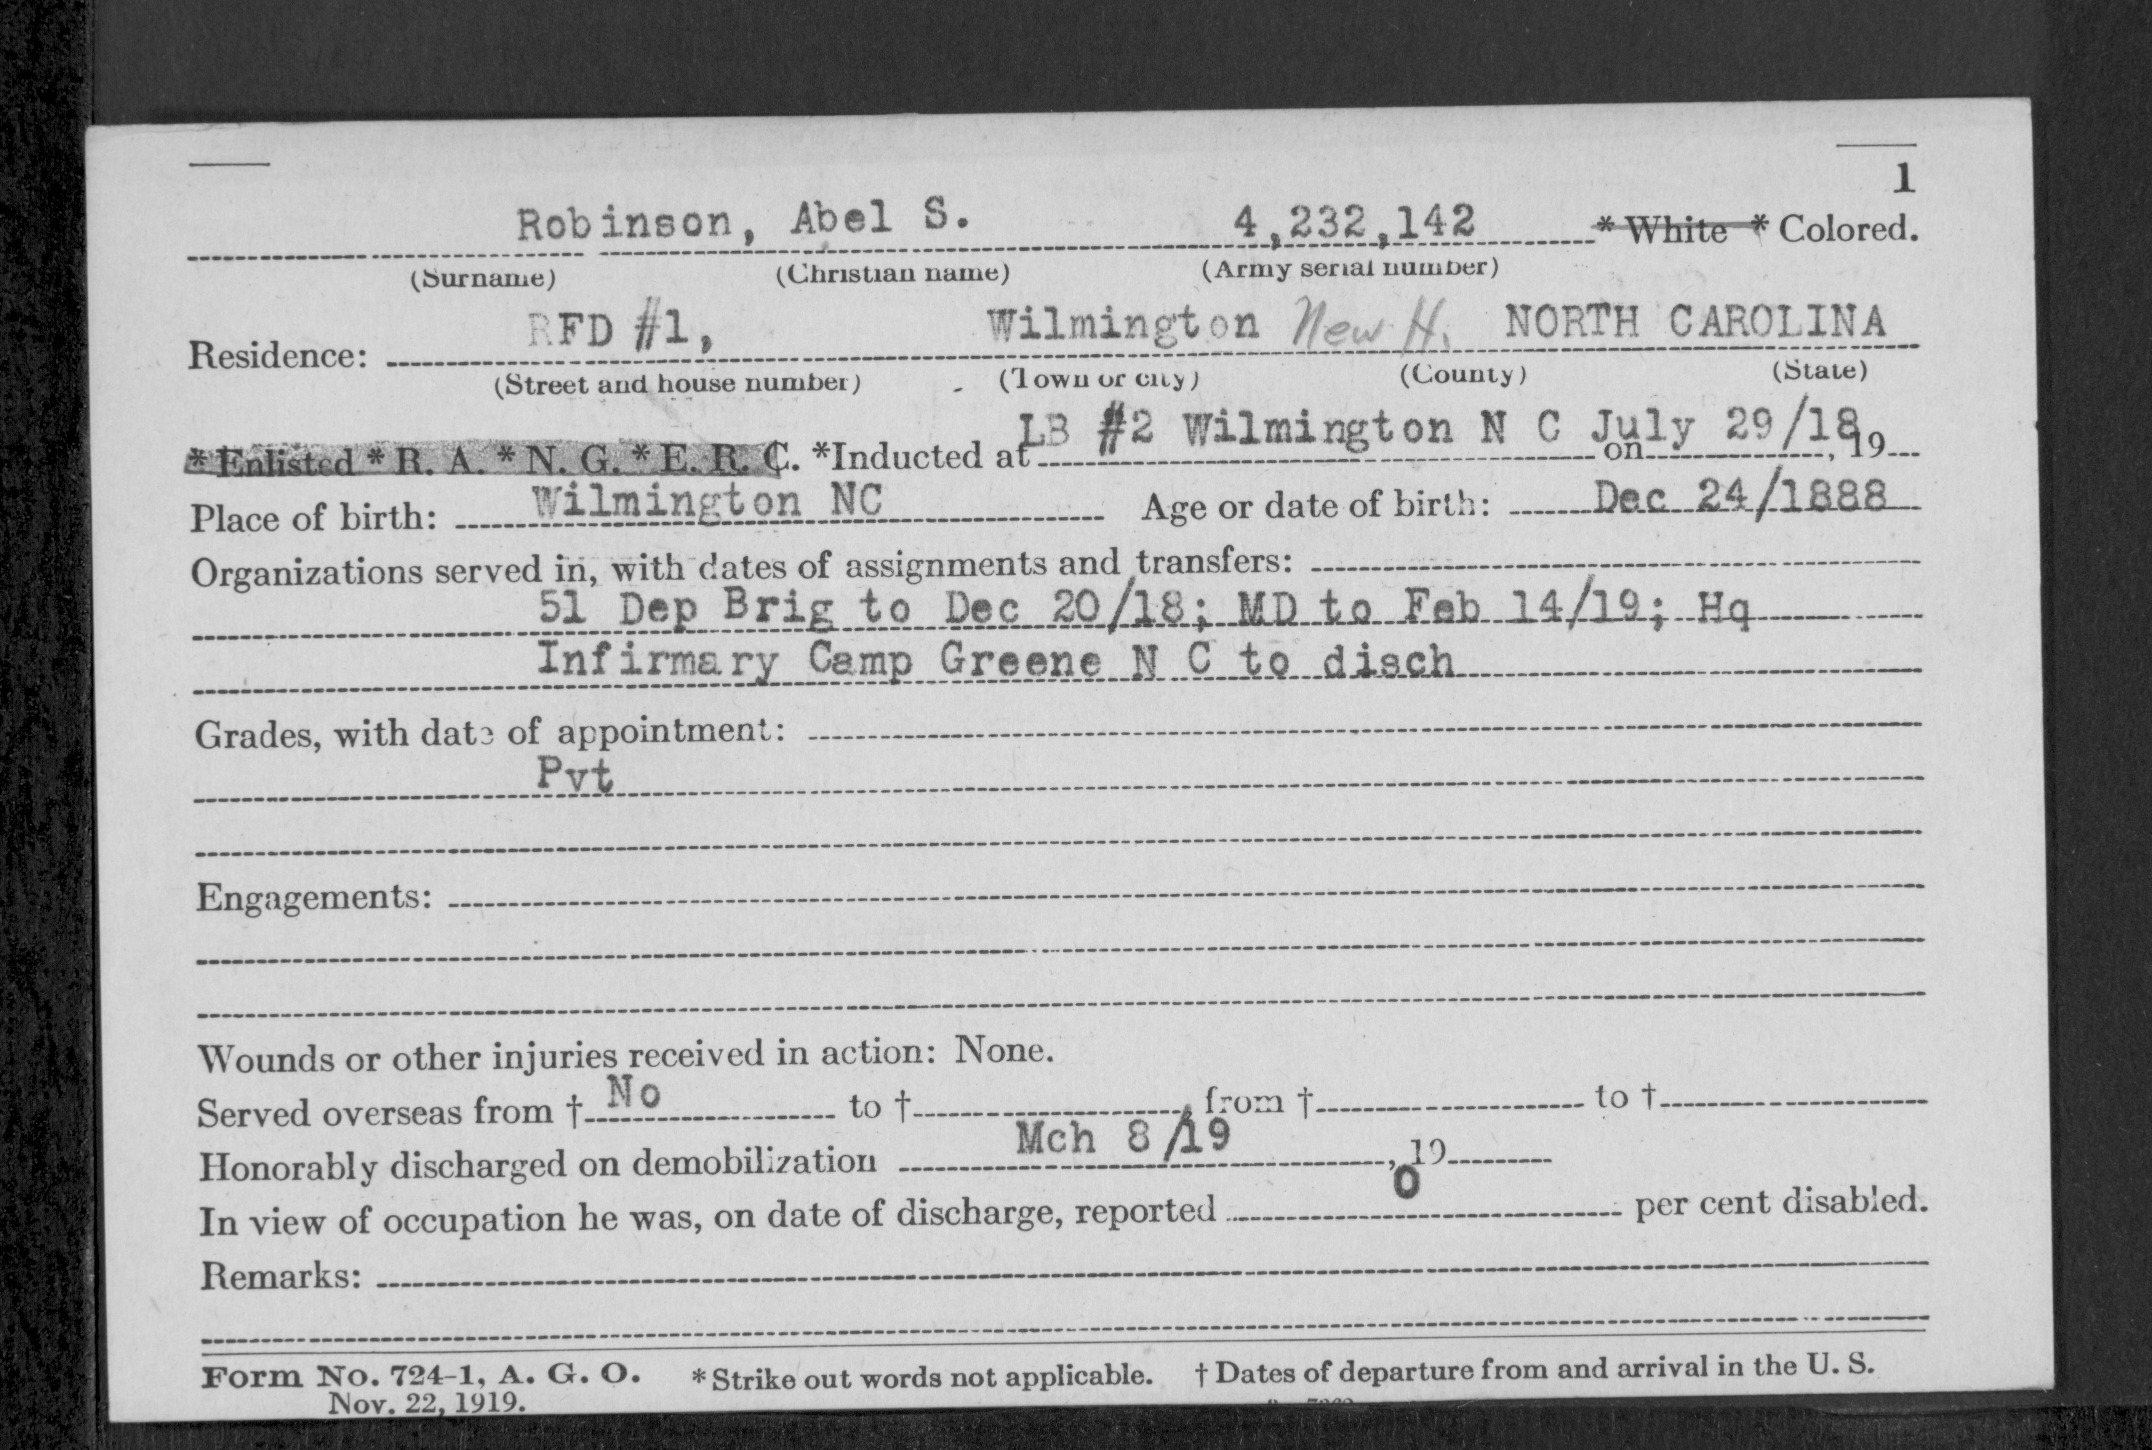 1
Robinson, Abel S. 4,232,142 * White * Colored.
(Surname) (Christian name) (Army serial number)
Residence: RFD #1, Wilmington New H. NORTH CAROLINA
(Street and house number) (Town or city) (County) (State)
* Enlisted * R. A. * N. G. * E. R. C. *Inducted at LB #2 Wilmington N C on July 29/18, 19
Place of birth: Wilmington NC Age or date of birth: Dec 24/1888
Organizations served in, with dates of assignments and transfers:
51 Dep Brig to Dec 20/18; MD to Feb 14/19; Hq
Infirmary Camp Greene N C to disch
Grades, with date of appointment:
Pvt
Engagements:
Wounds or other injuries received in action: None.
Served overseas from † No to †, from † to †
Honorably discharged on demobilization Mch 8/19, 19
In view of occupation he was, on date of discharge, reported 0 per cent disabled.
Remarks:
Form No. 724-1, A. G. O. * Strike out words not applicable. † Dates of departure from and arrival in the U. S.
Nov. 22, 1919.